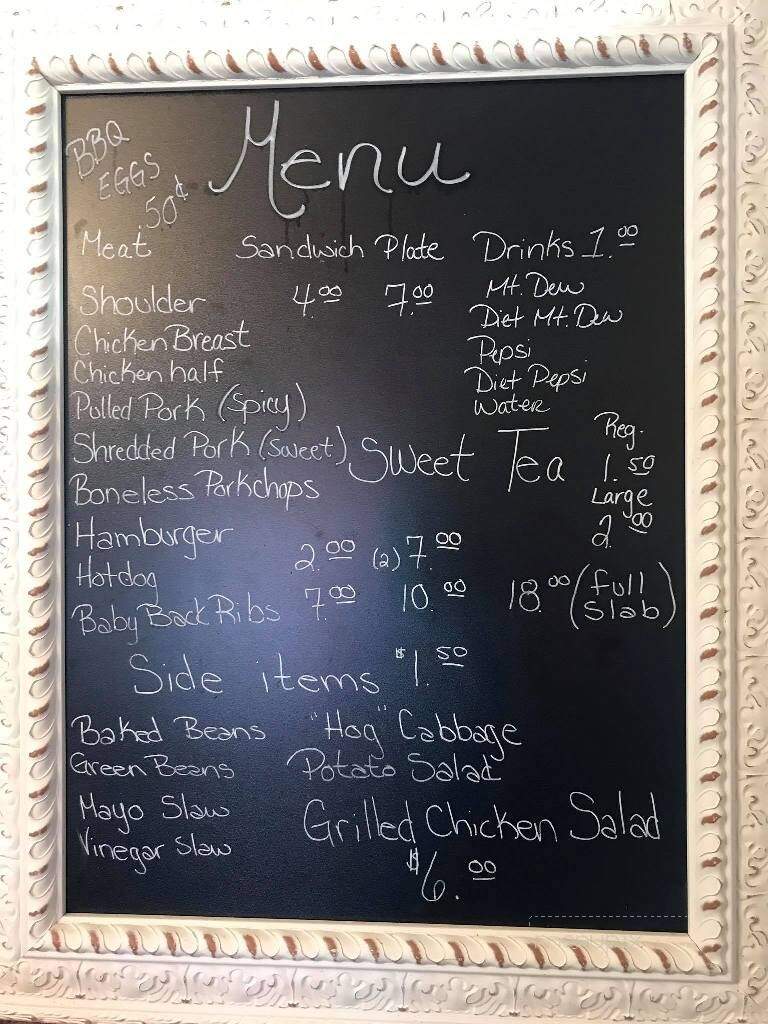 BBQ
EGGS
.50¢
Menu
Meat Sandwich Plate Drinks 1.00
Shoulder 4.00 7.00 Mt. Dew
Chicken Breast Diet Mt. Dew
Chicken half Pepsi
Pulled Pork (Spicy) Diet Pepsi
Water
Shredded Pork (Sweet) Sweet Tea Reg. 1.50
Boneless Porkchops Large 2.00
Hamburger
Hotdog 2.00 (2) 7.00
Baby Back Ribs 7.00 10.00 18.00 (full slab)
Side items $1.50
Baked Beans "Hog" Cabbage
Green Beans Potato Salad
Mayo Slaw Grilled Chicken Salad
Vinegar Slaw $6.00